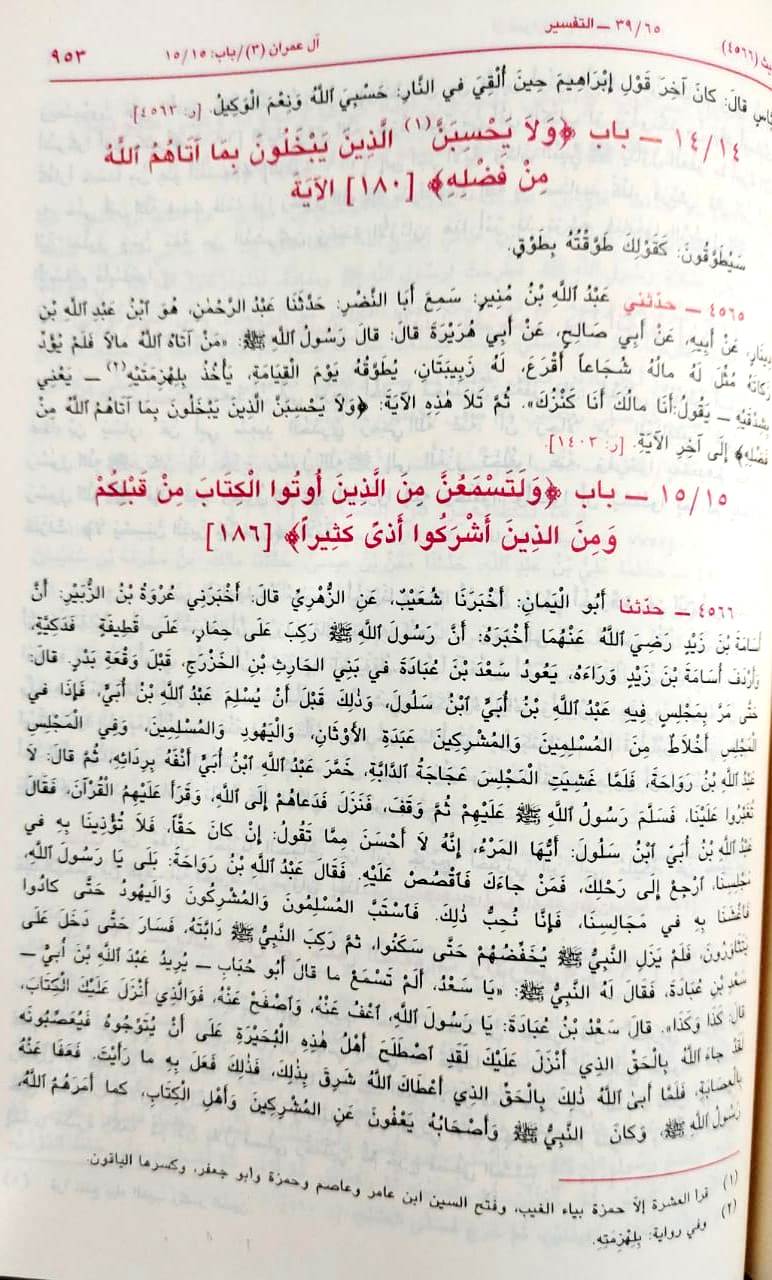 ٣٩/٦٥ ــ التفسير
(٤٥٦٦)
آل عمران (٣)/ باب: ١٥/١٥
٩٥٣
قالَ: كانَ آخِرَ قَوْلِ إِبْرَاهِيمَ حِينَ أُلْقِيَ في النَّارِ: حَسْبِيَ ٱللَّهُ وَنِعْمَ الْوَكِيلُ. [ر: ٤٥٦٣]
١٤/١٤ ــ باب ﴿وَلَا يَحْسِبَنَّ(١) الَّذِينَ يَبْخَلُونَ بِمَا آتَاهُمُ ٱللَّهُ
مِنْ فَضْلِهِ﴾ [١٨٠] الآيَةَ
سَيُطَوَّقُونَ: كَقَوْلِكَ طَوَّقْتُهُ بِطَوْقٍ.
٤٥٦٥ ــ حدّثني عَبْدُ ٱللَّهِ بْنُ مُنِيرٍ: سَمِعَ أَبَا النَّضْرِ: حَدَّثَنَا عَبْدُ الرَّحْمٰنِ، هُوَ ٱبْنُ عَبْدِ ٱللَّهِ بْنِ
دِينَارٍ، عَنْ أَبِيهِ، عَنْ أَبِي صَالِحٍ، عَنْ أَبِي هُرَيْرَةَ قالَ: قالَ رَسُولُ ٱللَّهِ ﷺ: «مَنْ آتَاهُ ٱللَّهُ مالًا فَلَمْ يُؤَدِّ
زَكاتَهُ مُثِّلَ لَهُ مالُهُ شُجَاعاً أَقْرَعَ، لَهُ زَبِيبَتَانِ، يُطَوَّقُهُ يَوْمَ الْقِيَامَةِ، يَأْخُذُ بِلِهْزِمَتَيْهِ(٢) ــ يَعْنِي
بِشِدْقَيْهِ ــ يَقُولُ: أَنَا مالُكَ أَنَا كَنْزُكَ». ثُمَّ تَلَا هٰذِهِ الآيَةَ: ﴿وَلَا يَحْسِبَنَّ الَّذِينَ يَبْخَلُونَ بِمَا آتَاهُمُ ٱللَّهُ مِنْ
فَضْلِهِ﴾ إِلَى آخِرِ الآيَةِ. [ر: ١٤٠٣]
١٥/١٥ ــ باب ﴿وَلَتَسْمَعُنَّ مِنَ الَّذِينَ أُوتُوا الْكِتَابَ مِنْ قَبْلِكُمْ
وَمِنَ الَّذِينَ أَشْرَكُوا أَذىً كَثِيراً﴾ [١٨٦]
٤٥٦٦ ــ حدّثنا أَبُو الْيَمَانِ: أَخْبَرَنَا شُعَيْبٌ، عَنِ الزُّهْرِيِّ قالَ: أَخْبَرَنِي عُرْوَةُ بْنُ الزُّبَيْرِ: أَنَّ
أُسَامَةَ بْنَ زَيْدٍ رَضِيَ ٱللَّهُ عَنْهُمَا أَخْبَرَهُ: أَنَّ رَسُولَ ٱللَّهِ ﷺ رَكِبَ عَلَى حِمَارٍ، عَلَى قَطِيفَةٍ فَدَكِيَّةٍ،
وَأَرْدَفَ أُسَامَةَ بْنَ زَيْدٍ وَرَاءَهُ، يَعُودُ سَعْدَ بْنَ عُبَادَةَ في بَنِي الحَارِثِ بْنِ الخَزْرَجِ، قَبْلَ وَقْعَةِ بَدْرٍ. قالَ:
حَتَّى مَرَّ بِمَجْلِسٍ فِيهِ عَبْدُ ٱللَّهِ بْنُ أُبَيٍّ ٱبْنُ سَلُولَ، وَذٰلِكَ قَبْلَ أَنْ يُسْلِمَ عَبْدُ ٱللَّهِ بْنُ أُبَيٍّ، فَإِذَا في
الْمَجْلِسِ أَخْلَاطٌ مِنَ الْمُسْلِمِينَ وَالْمُشْرِكِينَ عَبَدَةِ الأَوْثَانِ، وَالْيَهُودِ وَالْمُسْلِمِينَ، وَفِي الْمَجْلِسِ
عَبْدُ ٱللَّهِ بْنُ رَوَاحَةَ، فَلَمَّا غَشِيَتِ الْمَجْلِسَ عَجَاجَةُ الدَّابَّةِ، خَمَّرَ عَبْدُ ٱللَّهِ ٱبْنُ أُبَيٍّ أَنْفَهُ بِرِدَائِهِ، ثُمَّ قالَ: لَا
تُغَبِّرُوا عَلَيْنَا، فَسَلَّمَ رَسُولُ ٱللَّهِ ﷺ عَلَيْهِمْ ثُمَّ وَقَفَ، فَنَزَلَ فَدَعاهُمْ إِلَى ٱللَّهِ، وَقَرَأَ عَلَيْهِمُ الْقُرْآنَ، فَقَالَ
عَبْدُ ٱللَّهِ بْنُ أُبَيٍّ ٱبْنُ سَلُولَ: أَيُّهَا المَرْءُ، إِنَّهُ لَا أَحْسَنَ مِمَّا تَقُولُ: إِنْ كانَ حَقًّا، فَلَا تُؤْذِينَا بِهِ في
مَجْلِسِنَا، ٱرْجِعْ إِلَى رَحْلِكَ، فَمَنْ جاءَكَ فَٱقْصُصْ عَلَيْهِ. فَقَالَ عَبْدُ ٱللَّهِ بْنُ رَوَاحَةَ: بَلَى يَا رَسُولَ ٱللَّهِ،
فَٱغْشَنَا بِهِ في مَجَالِسِنَا، فَإِنَّا نُحِبُّ ذٰلِكَ. فَٱسْتَبَّ الْمُسْلِمُونَ وَالْمُشْرِكُونَ وَالْيَهُودُ حَتَّى كادُوا
يَتَثَاوَرُونَ، فَلَمْ يَزَلِ النَّبِيُّ ﷺ يُخَفِّضُهُمْ حَتَّى سَكَنُوا، ثمَّ رَكِبَ النَّبِيُّ ﷺ دَابَّتَهُ، فَسَارَ حَتَّى دَخَلَ عَلَى
سَعْدِ بْنِ عُبَادَةَ، فَقَالَ لَهُ النَّبِيُّ ﷺ: «يَا سَعْدُ، أَلَمْ تَسْمَعْ ما قالَ أَبُو حُبَابٍ ــ يُرِيدُ عَبْدَ ٱللَّهِ بْنَ أُبَيٍّ ــ
قالَ: كَذَا وَكَذَا». قالَ سَعْدُ بْنُ عُبَادَةَ: يَا رَسُولَ ٱللَّهِ، ٱعْفُ عَنْهُ، وَٱصْفَحْ عَنْهُ، فَوَالَّذِي أَنْزَلَ عَلَيْكَ الْكِتَابَ،
لَقَدْ جاءَ ٱللَّهُ بِالْحَقِّ الذِي أَنْزَلَ عَلَيْكَ لَقَدِ ٱصْطَلَحَ أَهْلُ هٰذِهِ الْبُحَيْرَةِ عَلَى أَنْ يُتَوِّجُوهُ فَيُعَصِّبُونَهُ
بِالْعِصَابَةِ، فَلَمَّا أَبىٰ ٱللَّهُ ذٰلِكَ بِالْحَقِّ الذِي أَعْطَاكَ ٱللَّهُ شَرِقَ بِذٰلِكَ، فَذٰلِكَ فَعَلَ بِهِ ما رَأَيْتَ. فَعَفَا عَنْهُ
رَسُولُ ٱللَّهِ ﷺ، وَكانَ النَّبِيُّ ﷺ وَأَصْحَابُهُ يَعْفُونَ عَنِ الْمُشْرِكِينَ وَأَهْلِ الْكِتَابِ، كما أَمَرَهُمُ ٱللَّهُ،
(١) قرأ العشرة إلاّ حمزة بياء الغيب، وفتح السين ابن عامر وعاصم وحمزة وأبو جعفر، وكسرها الباقون.
(٢) وفي رواية: بِلِهْزِمَتِهِ.